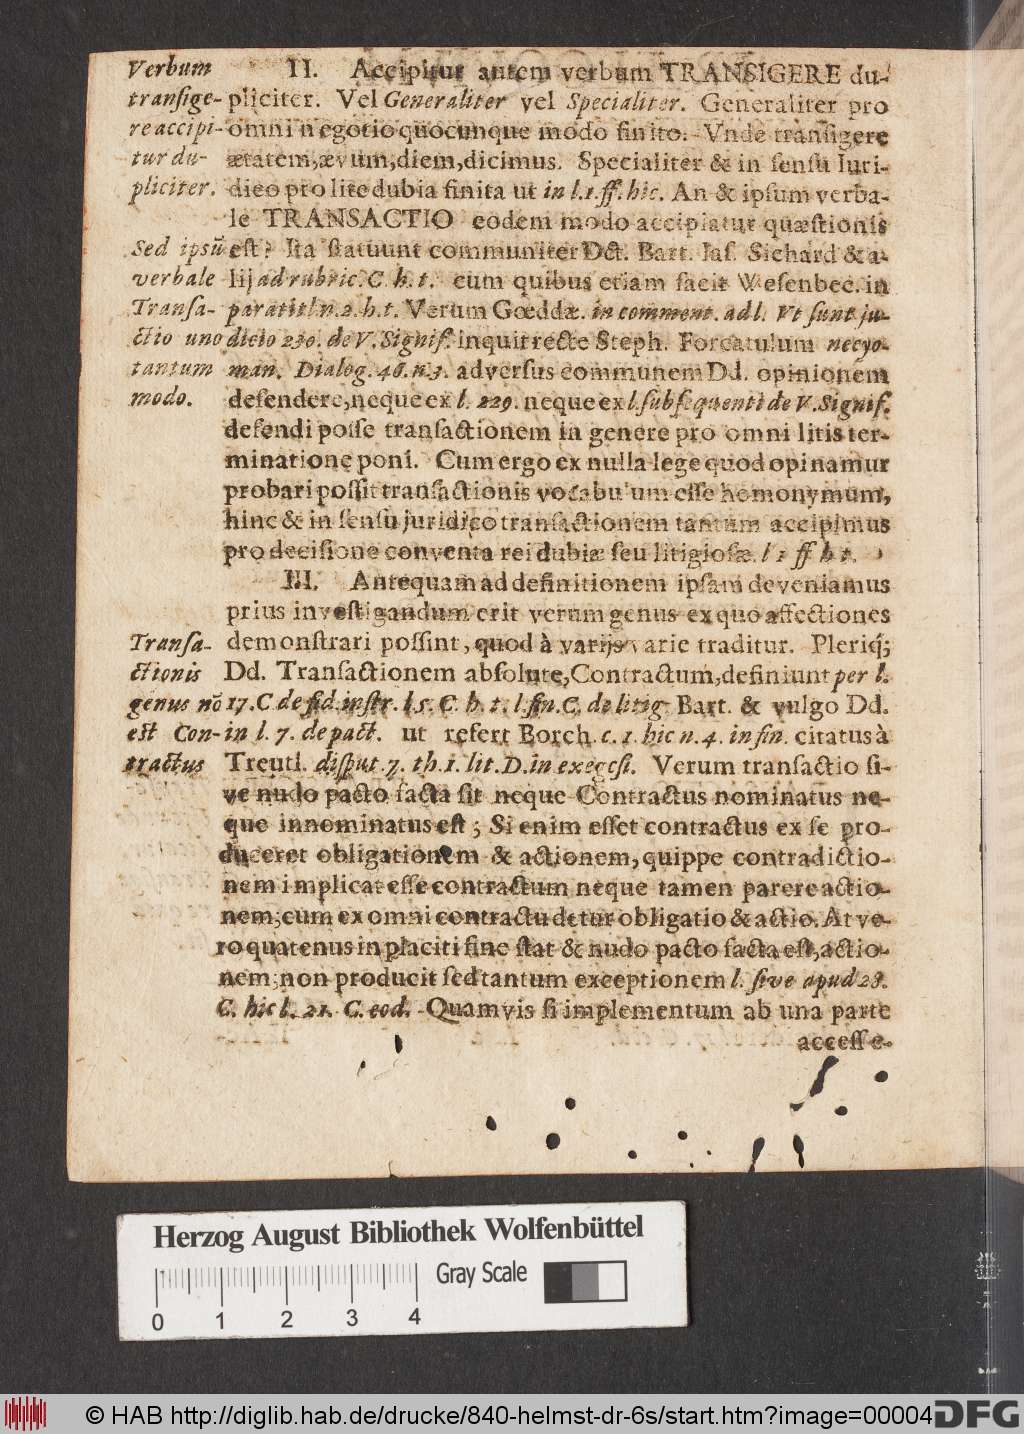 Verbum
tranſige-
re accipi-
tur du-
pliciter.
Sed ipsũ
verbale
Tranſa-
ctio uno
tantum
modo.
Tranſa-
ctionis
genus nõ
est Con-
tractus
II. Accipitur autem verbum TRANSIGERE du-
pliciter. Vel Generaliter vel Specialiter. Generaliter pro
omni negotio quocunque modo finito. Vnde tranſigere
ætatem, ævum, diem, dicimus. Specialiter & in ſenſu Iuri-
dico pro lite dubia finita ut in l. 1. ff. hic. An & ipſum verba-
le TRANSACTIO eodem modo accipiatur quæſtionis
eſt? Ita ſtatuunt communiter Dct. Bart. Iaſ. Sichard & a-
lij ad rubric. C. h. t. cum quibus etiam facit Weſenbec. in
paratitl. n. 2. h. t. Verum Gœddæ. in comment. ad l. Vt ſunt ju-
dicio 230. de V. Signiſ. inquit recte Steph. Forcatulum necyo-
man. Dialog. 48. n. 3. adverſus communem Dd. opinionem
defendere, neque ex l. 229. neque ex l. ſubſequenti de V. Signiſ.
defendi poſſe tranſactionem in genere pro omni litis ter-
minatione poni. Cum ergo ex nulla lege quod opinamur
probari poſſit tranſactionis vocabulum eſſe homonymum,
hinc & in ſenſu juridico tranſactionem tantum accipimus
pro deciſione conventa rei dubiæ ſeu litigioſæ. l 1 ff h t.
III. Antequam ad definitionem ipſam deveniamus
prius inveſtigandum erit verum genus ex quo affectiones
demonſtrari poſſint, quod à varijs varie traditur. Pleriq́;
Dd. Tranſactionem abſolute, Contractum, definiunt per l.
17. C de fid. inſtr. l. 5. C. h. t. l. fin. C. de litig. Bart. & vulgo Dd.
in l. 7. de pact. ut refert Borch. c. 1. hic n. 4. in fin. citatus à
Treutl. diſput. 7. th. 1. lit. D. in exegeſi. Verum tranſactio ſi-
ve nudo pacto facta ſit neque Contractus nominatus ne-
que innominatus eſt; Si enim eſſet contractus ex ſe pro-
duceret obligationem & actionem, quippe contradictio-
nem implicat eſſe contractum neque tamen parere actio-
nem, cum ex omni contractu detur obligatio & actio. At ve-
ro quatenus in placiti fine ſtat & nudo pacto facta eſt, actio-
nem, non producit ſed tantum exceptionem l. ſive apud 28.
C. hic l. 21. C. eod. Quamvis ſi implementum ab una parte
acceſſe-
Herzog August Bibliothek Wolfenbüttel
Gray Scale
0 1 2 3 4
© HAB http://diglib.hab.de/drucke/840-helmst-dr-6s/start.htm?image=00004
DFG